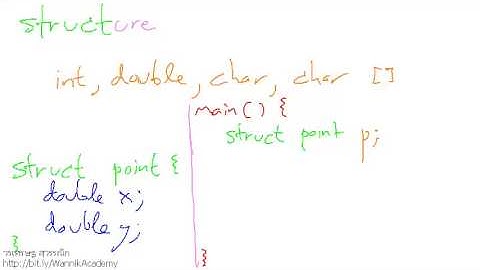 structure
int, double, char, char []
main() {
struct point p;
}
struct point {
double x;
double y;
}
http://bit.ly/WannikAcademy